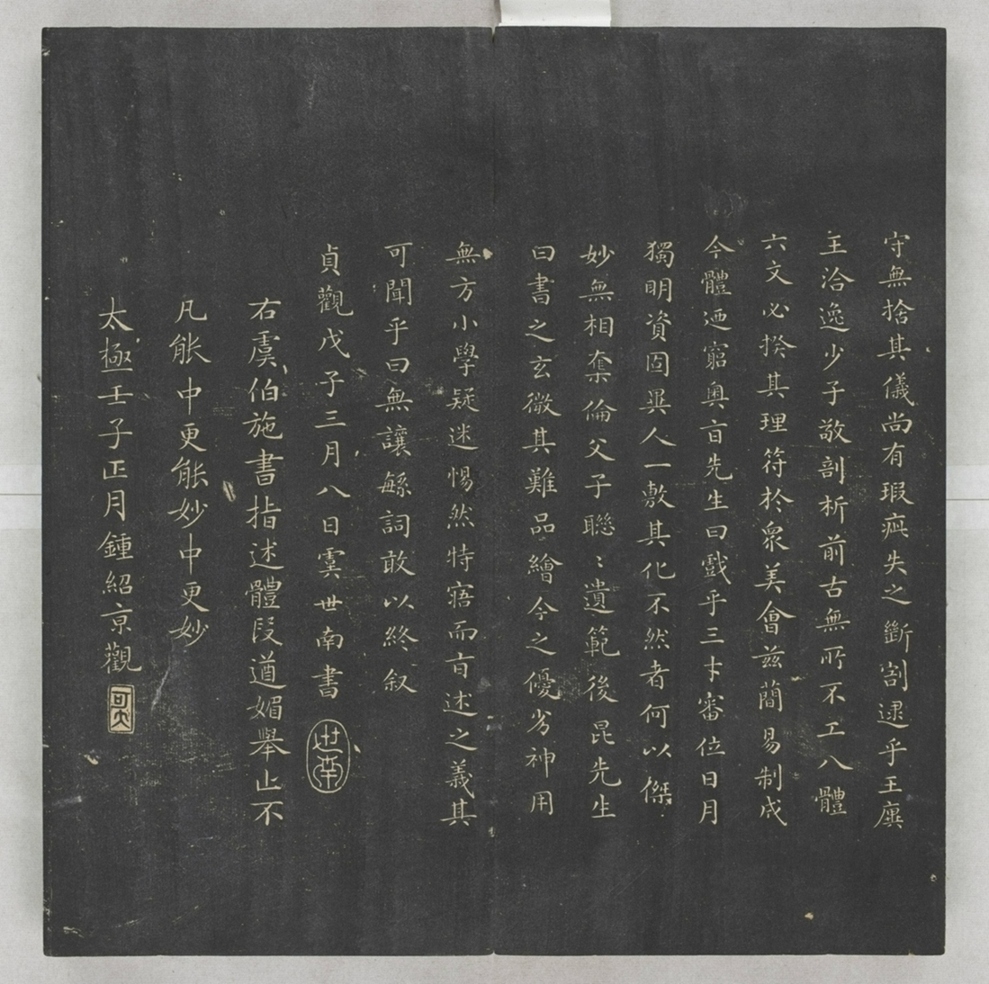 守無捨其儀尚有瑕疵失之斷割逮乎王廙
王洽逸少子敬剖析前古無所不工八體
六文必揆其理符於衆美會兹蕳易制成
今體迺窮奧旨先生曰戲乎三才審位日月
獨明資固異人一敷其化不然者何以傑
妙無相奪倫父子聮〻遺範後昆先生
曰書之玄微其難品繪今之優劣神用
無方小學疑迷惕然特寤而旨述之義其
可聞乎曰無讓繇詞敢以終叙
貞觀戊子三月八日虞世南書
世南
右虞伯施書指述體段遒媚舉止不
凡能中更能妙中更妙
太極壬子正月鍾紹京觀